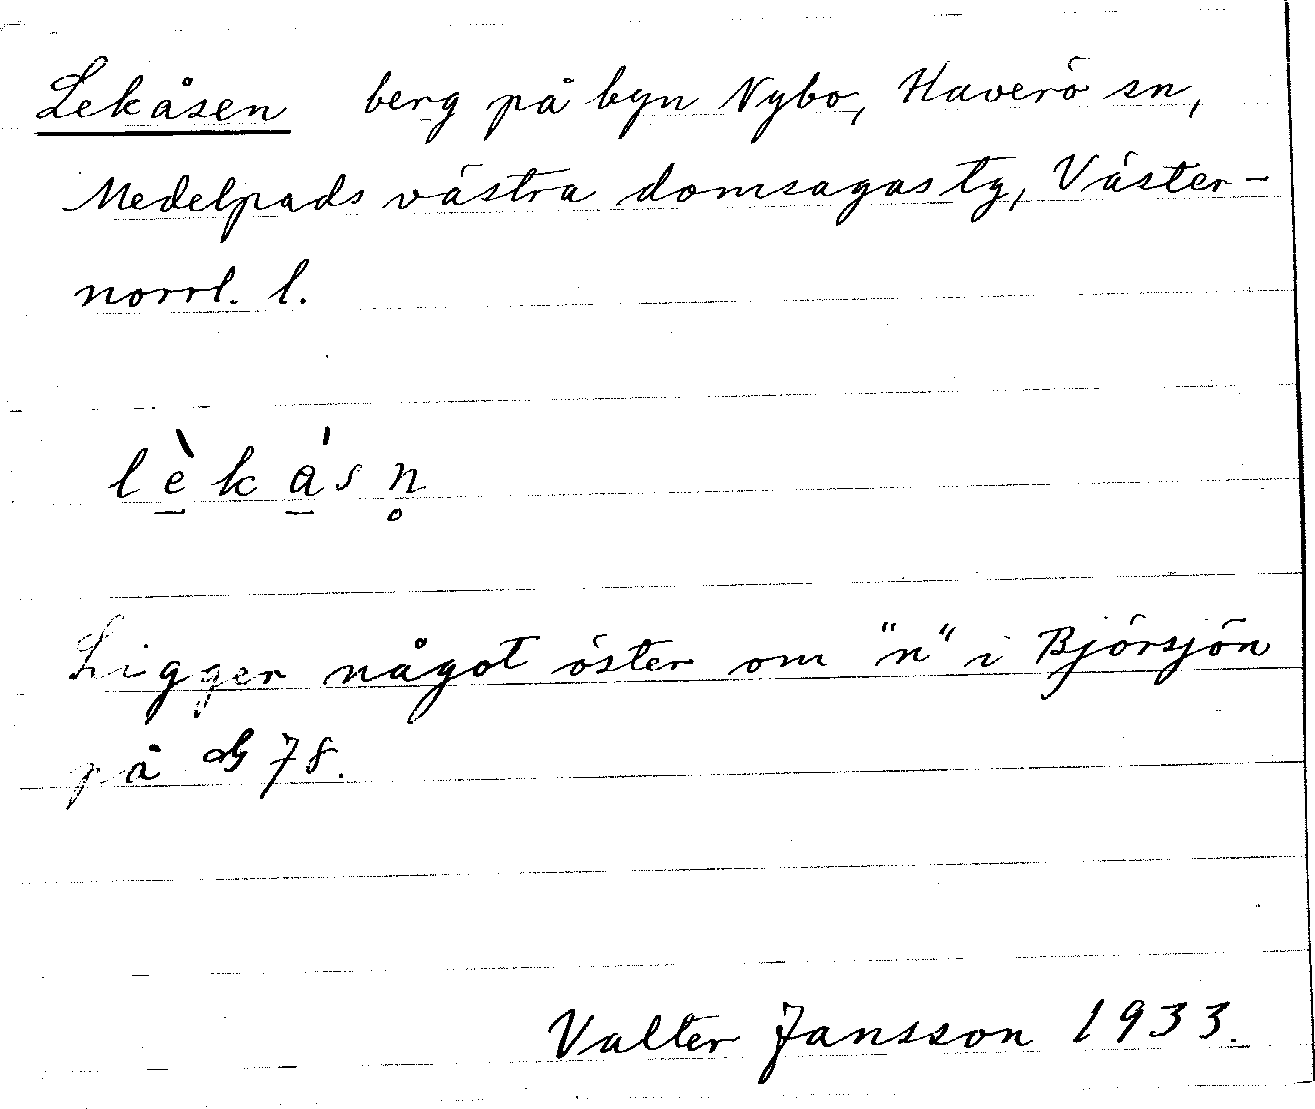 Lekåsen berg på byn Nybo, Haverö sn,
Medelpads västra domsagas tg, Väster-
norrl. l.
lèkásn̥
Ligger något öster om "n" i Björsjön
på 78.
Valter Jansson 1933.